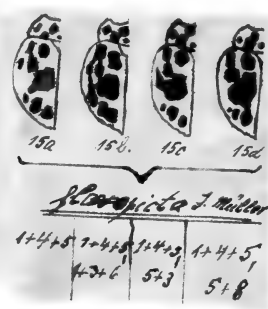 15a 15b. 15c 15d
flavopicta J. Müller
1+4+5 1+4+5, 1+4+5, 1+4+5,
1+3+6 5+3 5+8